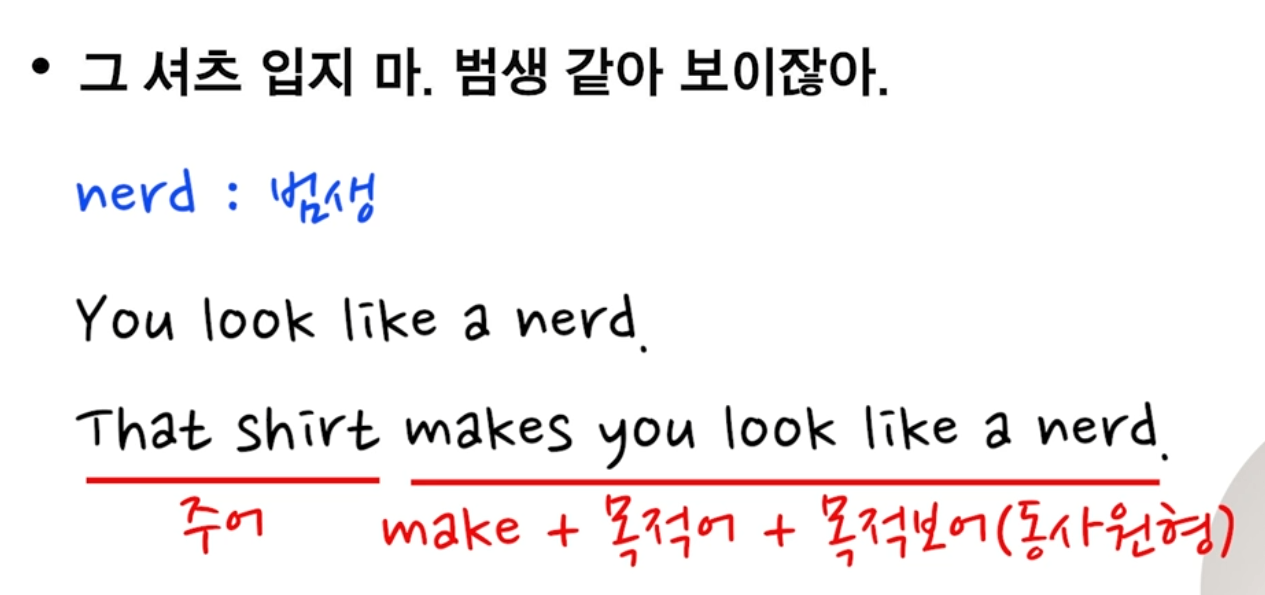 • 그 셔츠 입지 마. 범생 같아 보이잖아.
nerd : 범생
You look like a nerd.
That shirt makes you look like a nerd.
주어 make + 목적어 + 목적보어(동사원형)